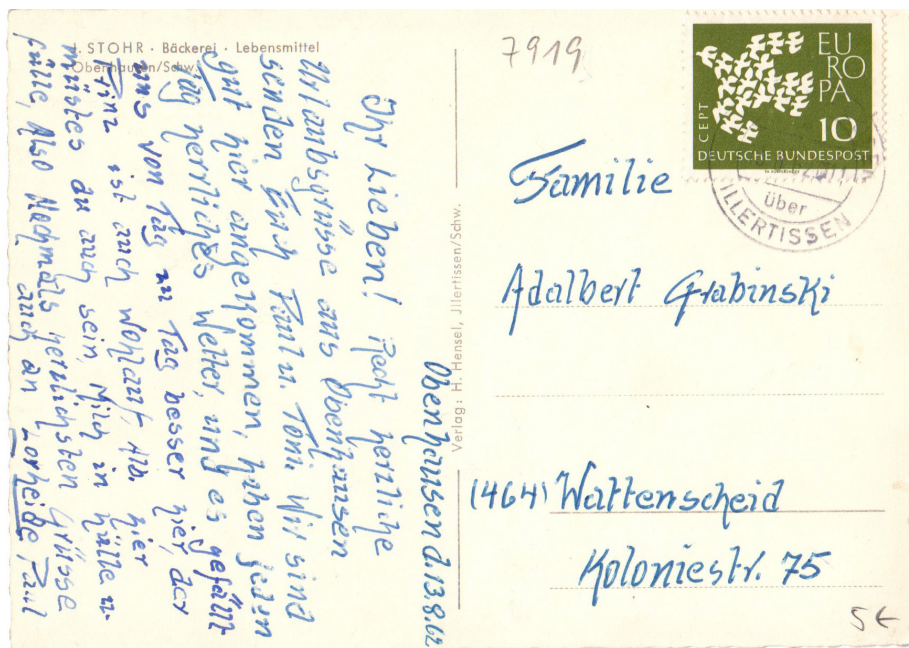 J. STOHR · Bäckerei · Lebensmittel
Obenhausen/Schw.
Obenhausen d. 13.8.62
Ihr Lieben! Recht herzliche
Urlaubsgrüsse aus Obenhausen
senden Euch Paul u. Toni. Wir sind
gut hier angekommen, haben jeden
Tag herrliches Wetter, und es gefällt
uns von Tag zu Tag besser hier, der
Prinz ist auch wohlauf, Alb. hier
müstes du auch sein, Milch in hülle u.
fülle, Also Nochmals herzlichsten Grüsse
auch an Lorheide, Paul
Verlag: H. Hensel, Jllertissen/Schw.
7919
EUROPA
CEPT
10
DEUTSCHE BUNDESPOST
über
ILLERTISSEN
Familie
Adalbert Grabinski
(464) Wattenscheid
Koloniestr. 75
5 €